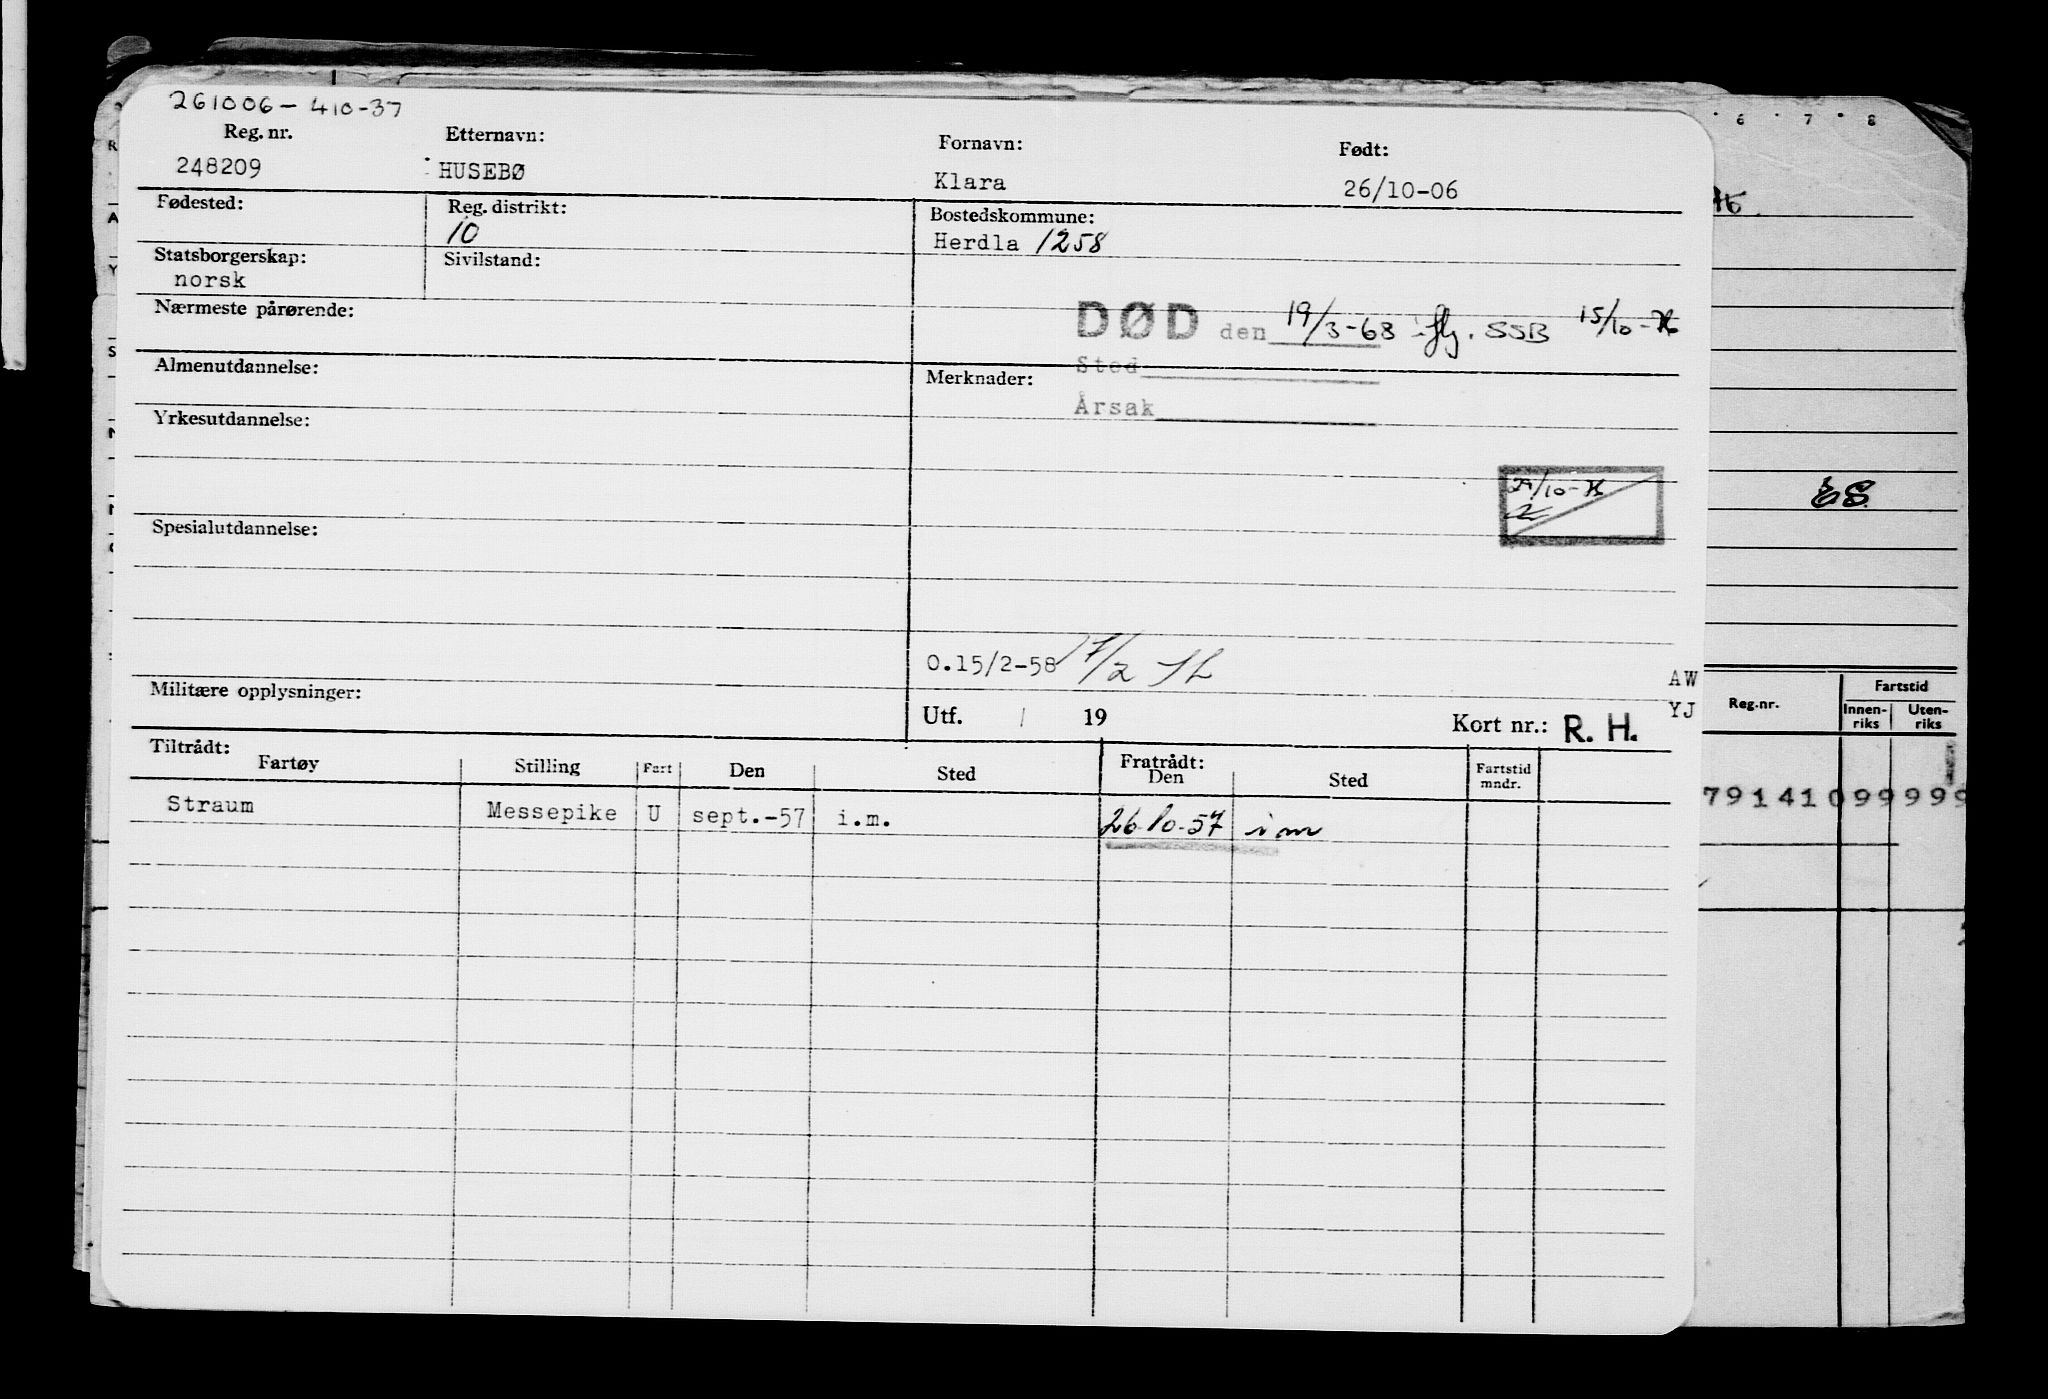 261006-410-37
Reg. nr. Etternavn: Fornavn: Født:
248209 HUSEBØ Klara 26/10-06
Fødested: Reg. distrikt: Bostedskommune:
10 Herdla 1258
Statsborgerskap: Sivilstand:
norsk
Nærmeste pårørende:
DØD den 19/3-68 iflg. SSB 15/10-
Sted
Almenutdannelse: Merknader:
Årsak
Yrkesutdannelse:
Spesialutdannelse:
0.15/2-58
Militære opplysninger:
Utf. / 19 Kort nr.: R. H.
Tiltrådt: Fratrådt:
Fartøy Stilling Fart Den Sted Den Sted Fartstid mndr.
Straum Messepike U sept.-57 i.m. 26-10-57 i m
6 7 8
ES
AW
YJ
Reg.nr. Fartstid
Innen-riks Uten-riks
7914109999